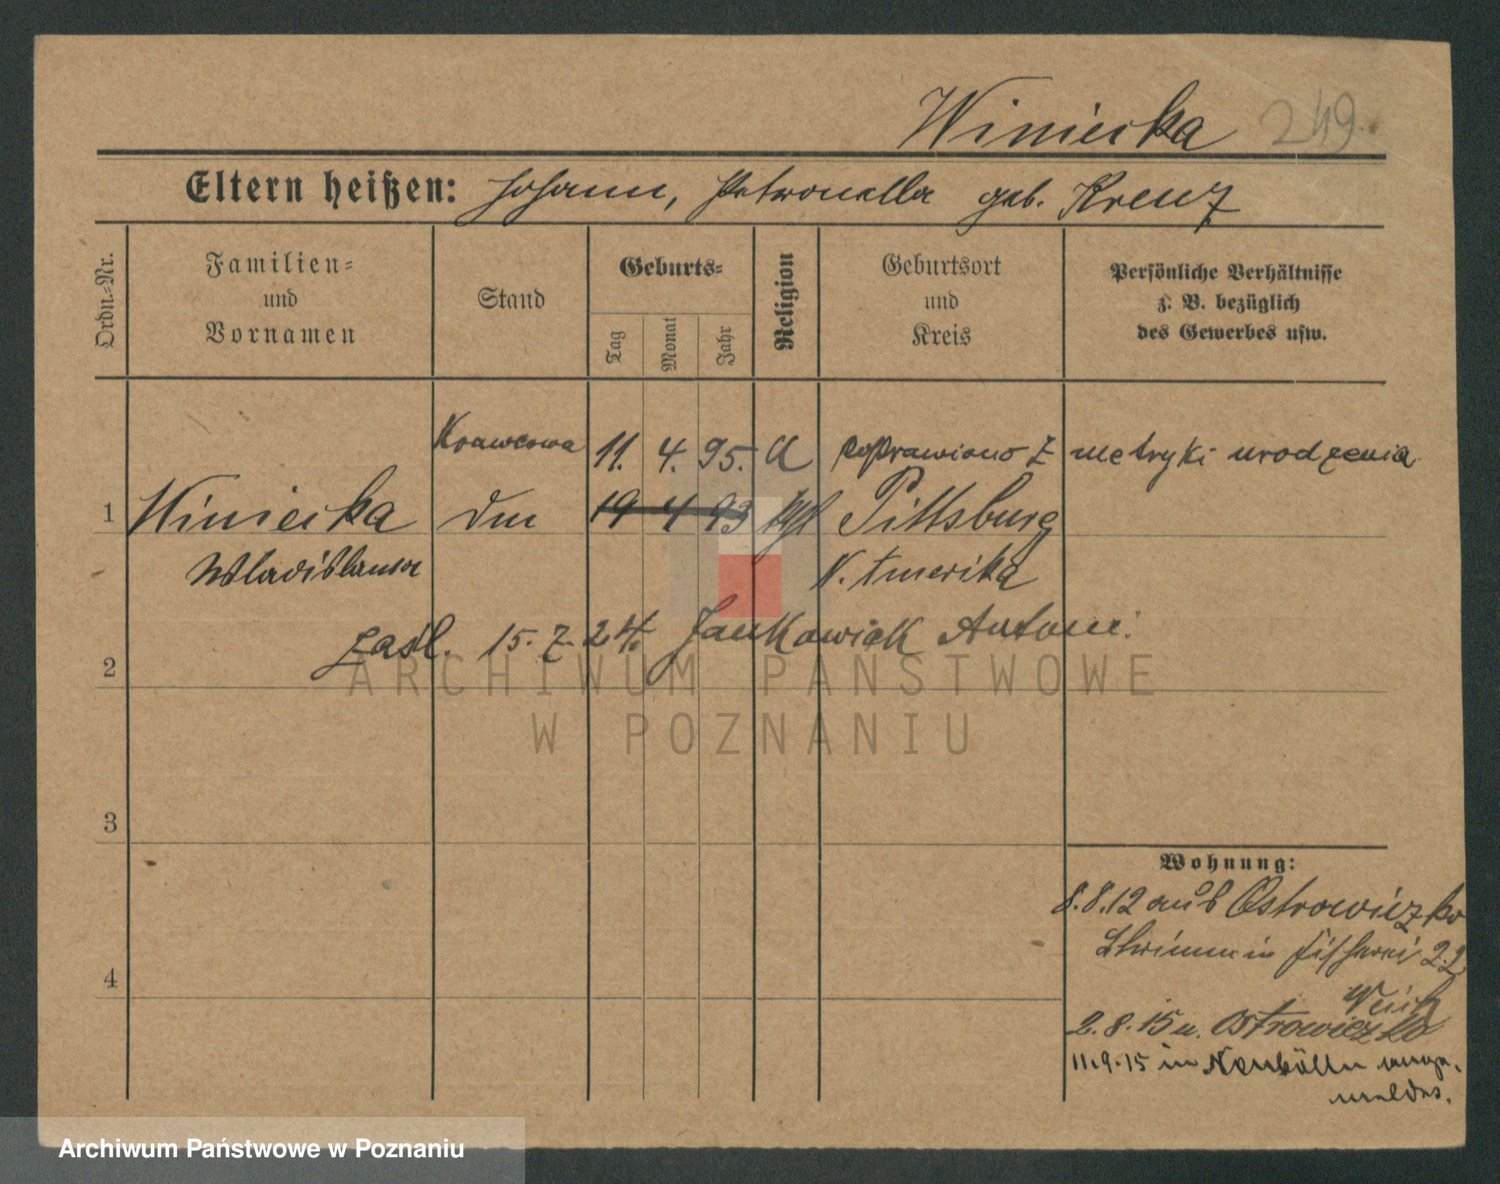 Winiecka 249.
Eltern heißen: Johann, Petronella geb. Krenz
Ordn.-Nr.
Familien-
und
Vornamen
Stand
Geburts-
Tag
Monat
Jahr
Religion
Geburtsort
und
Kreis
Persönliche Verhältnisse
z. B. bezüglich
des Gewerbes usw.
Krawcowa 11. 4. 95. poprawiono z metryki urodzenia
1 Winiecka 19 4 93 kath Pittsburg
Wladislawa N. Amerika
zaśl. 15. 7. 24. Jankowiak Antoni
2
3
4
Wohnung:
8.8.12 aus Ostrowieczko
Schrimm in Fischerei 22
2.8.15 n. Ostrowieczko
11.9.15 in Neukölln ange-
meldet.
ARCHIWUM PAŃSTWOWE
W POZNANIU
Archiwum Państwowe w Poznaniu